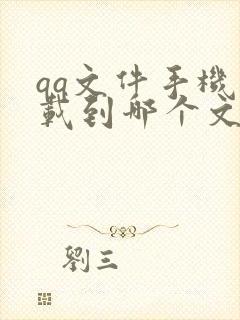 qq文件手機
載到哪个文
劉三